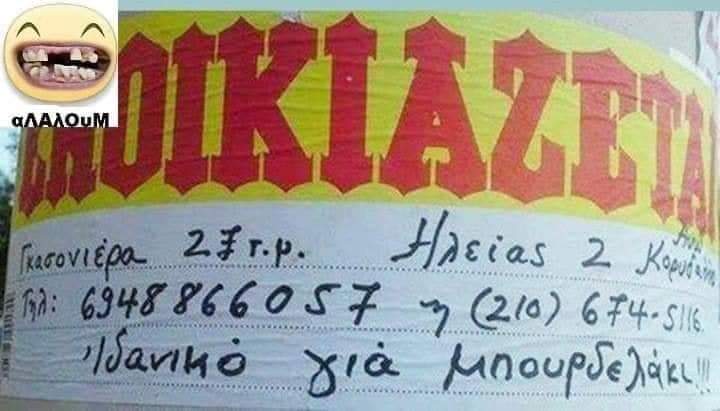 αΛΑλΟυΜ
ΕΝΟΙΚΙΑΖΕΤΑΙ
Γκασονιέρα 27 τ.μ. Ηλείας 2
Τηλ: 6948866057 η (210) 674-5116
Ιδανικό γιά μπουρδελάκι!!!